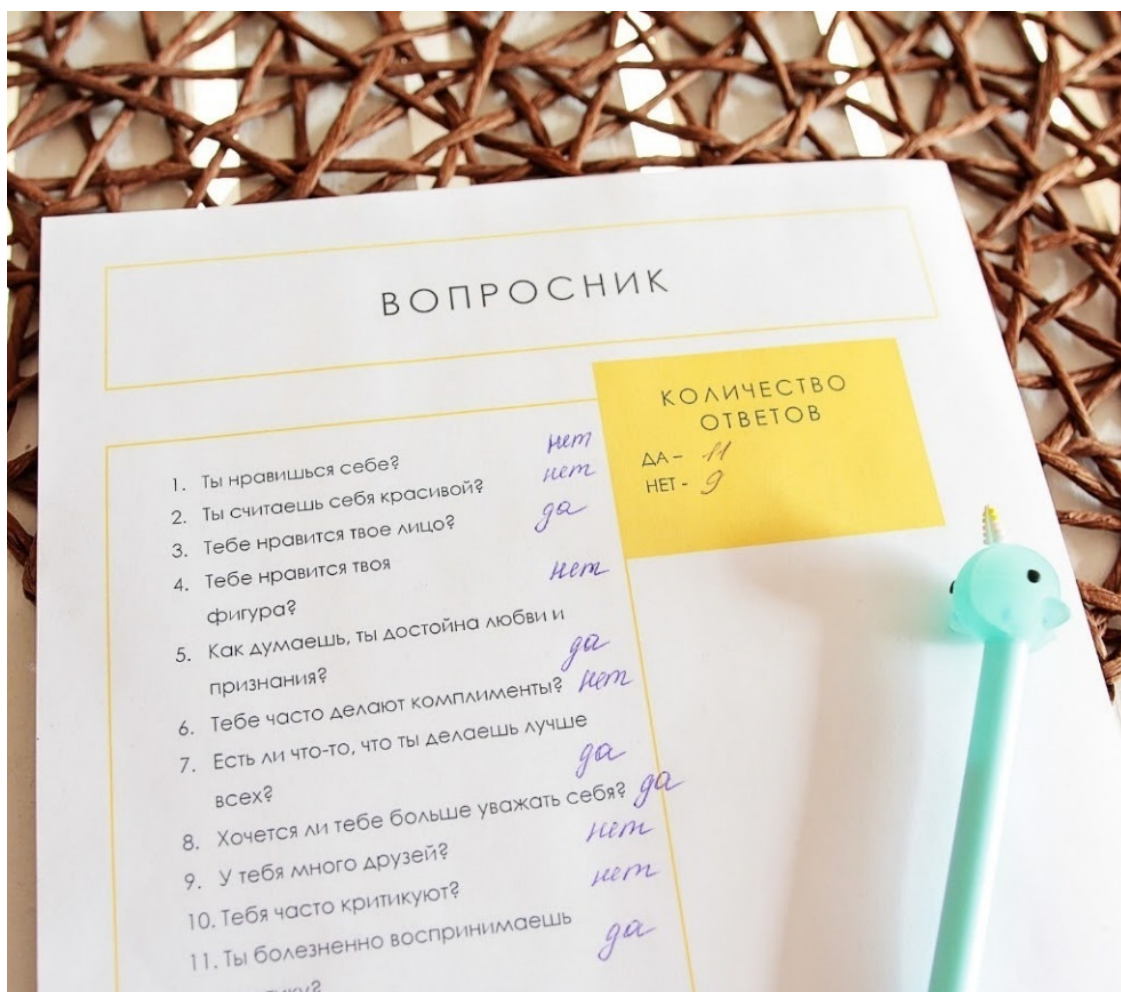 ВОПРОСНИК
КОЛИЧЕСТВО
ОТВЕТОВ
ДА – 11
НЕТ - 9
1. Ты нравишься себе? нет
2. Ты считаешь себя красивой? нет
3. Тебе нравится твое лицо? да
4. Тебе нравится твоя
фигура? нет
5. Как думаешь, ты достойна любви и
признания? да
6. Тебе часто делают комплименты? нет
7. Есть ли что-то, что ты делаешь лучше
всех? да
8. Хочется ли тебе больше уважать себя? да
9. У тебя много друзей? нет
10. Тебя часто критикуют? нет
11. Ты болезненно воспринимаешь
да